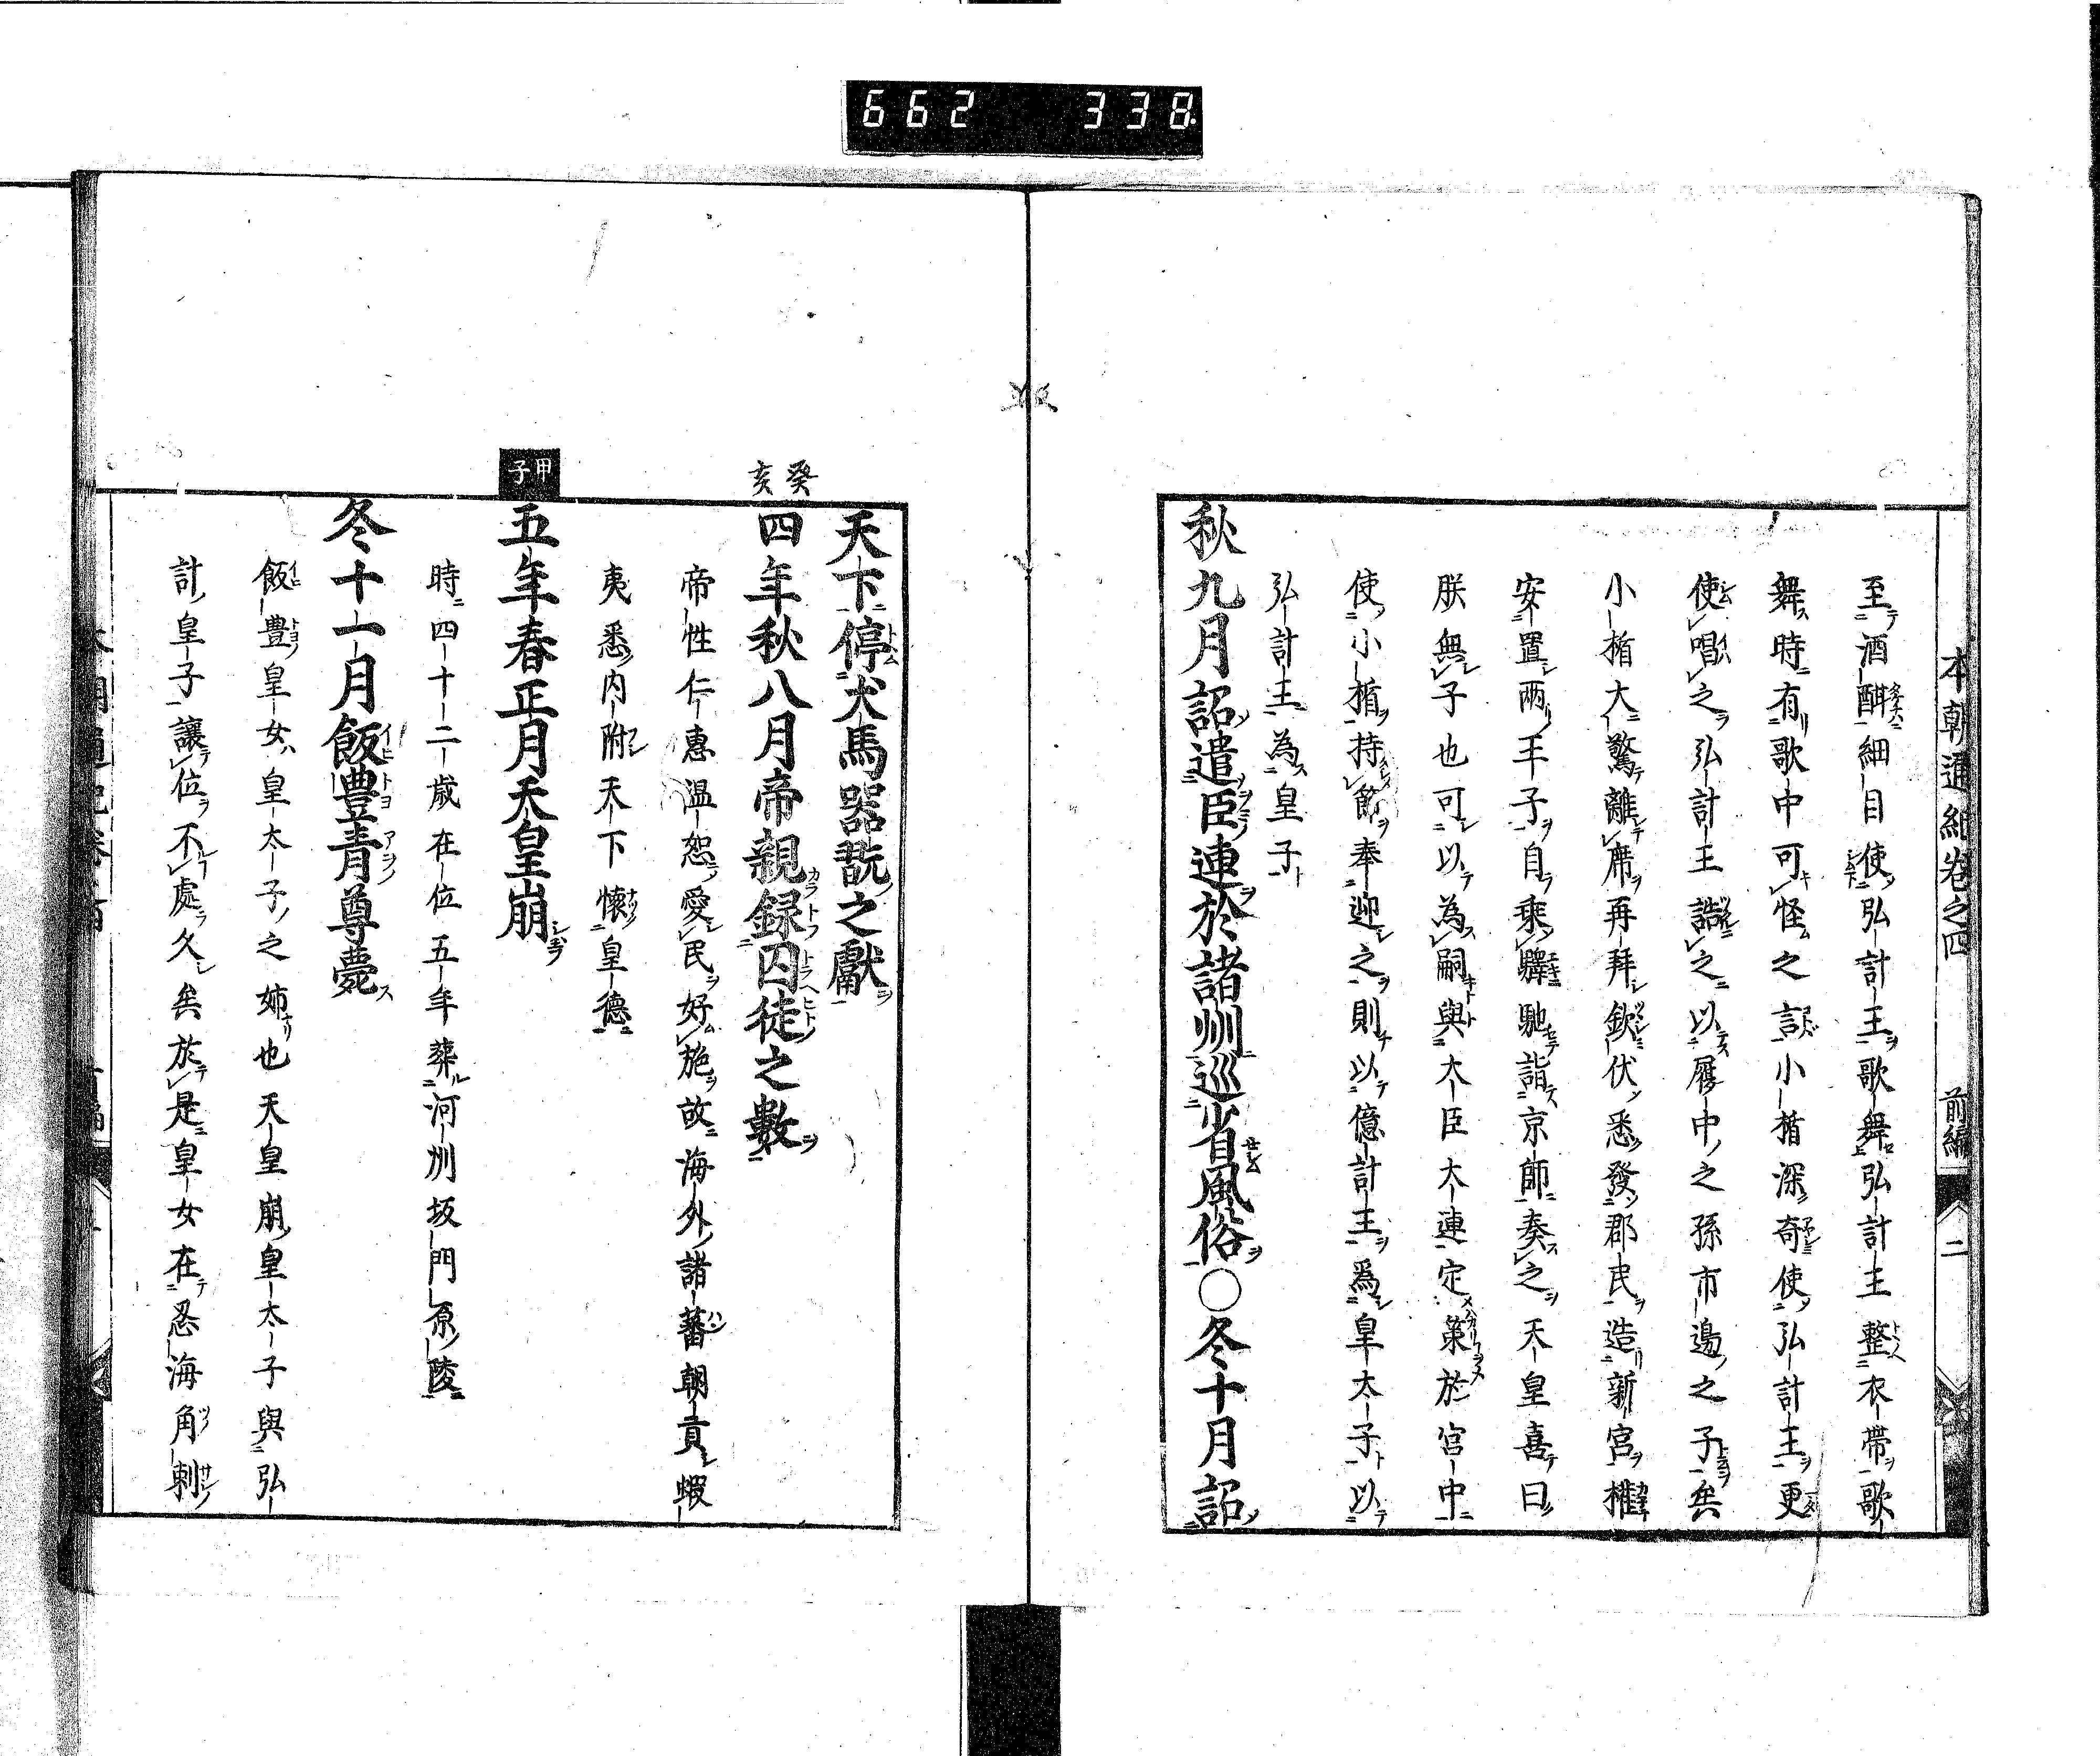 662 338
本朝通紀卷之四 前編 二
至酒酣細目使弘計王歌舞弘計王整衣帶歌
舞時有歌中可怪之言小楯深奇使弘計王更
使唱之弘計王誥之以履中之孫市邊之子矣
小楯大驚離席再拜欽伏悉發郡民造新宮權
安置兩王子自乘驛馳詣京師奏之天皇喜曰
朕無子也可以為嗣與大臣大連定策於宮中
使小楯持節奉迎之則以億計王爲皇太子以
弘計王為皇子
秋九月詔遣臣連於諸州巡省風俗〇冬十月詔
天下停犬馬器翫之獻
癸亥
四年秋八月帝親録囚徒之數
帝性仁惠温恕愛民好施故海外諸蕃朝貢蝦
夷悉内附天下懷皇德
甲子
五年春正月天皇崩
時四十二歳在位五年葬河州坂門原陵
冬十一月飯豊青尊薨
飯豊皇女皇太子之姉也天皇崩皇太子與弘
計皇子讓位不處久矣於是皇女在忍海角刺